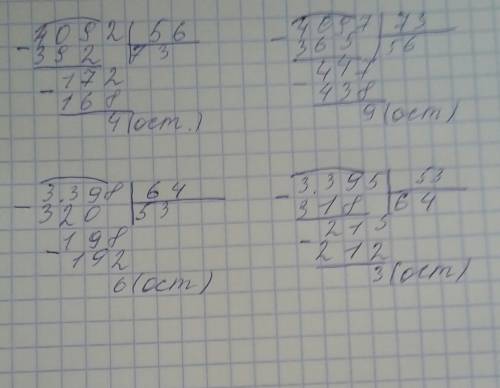 - 4092 | 56
392 | 73
- 172
168
4 (ост.)
- 4097 | 73
365 | 56
- 447
438
9 (ост)
- 3.398 | 64
320 | 53
- 198
192
6 (ост)
- 3.395 | 53
318 | 64
- 215
212
3 (ост)